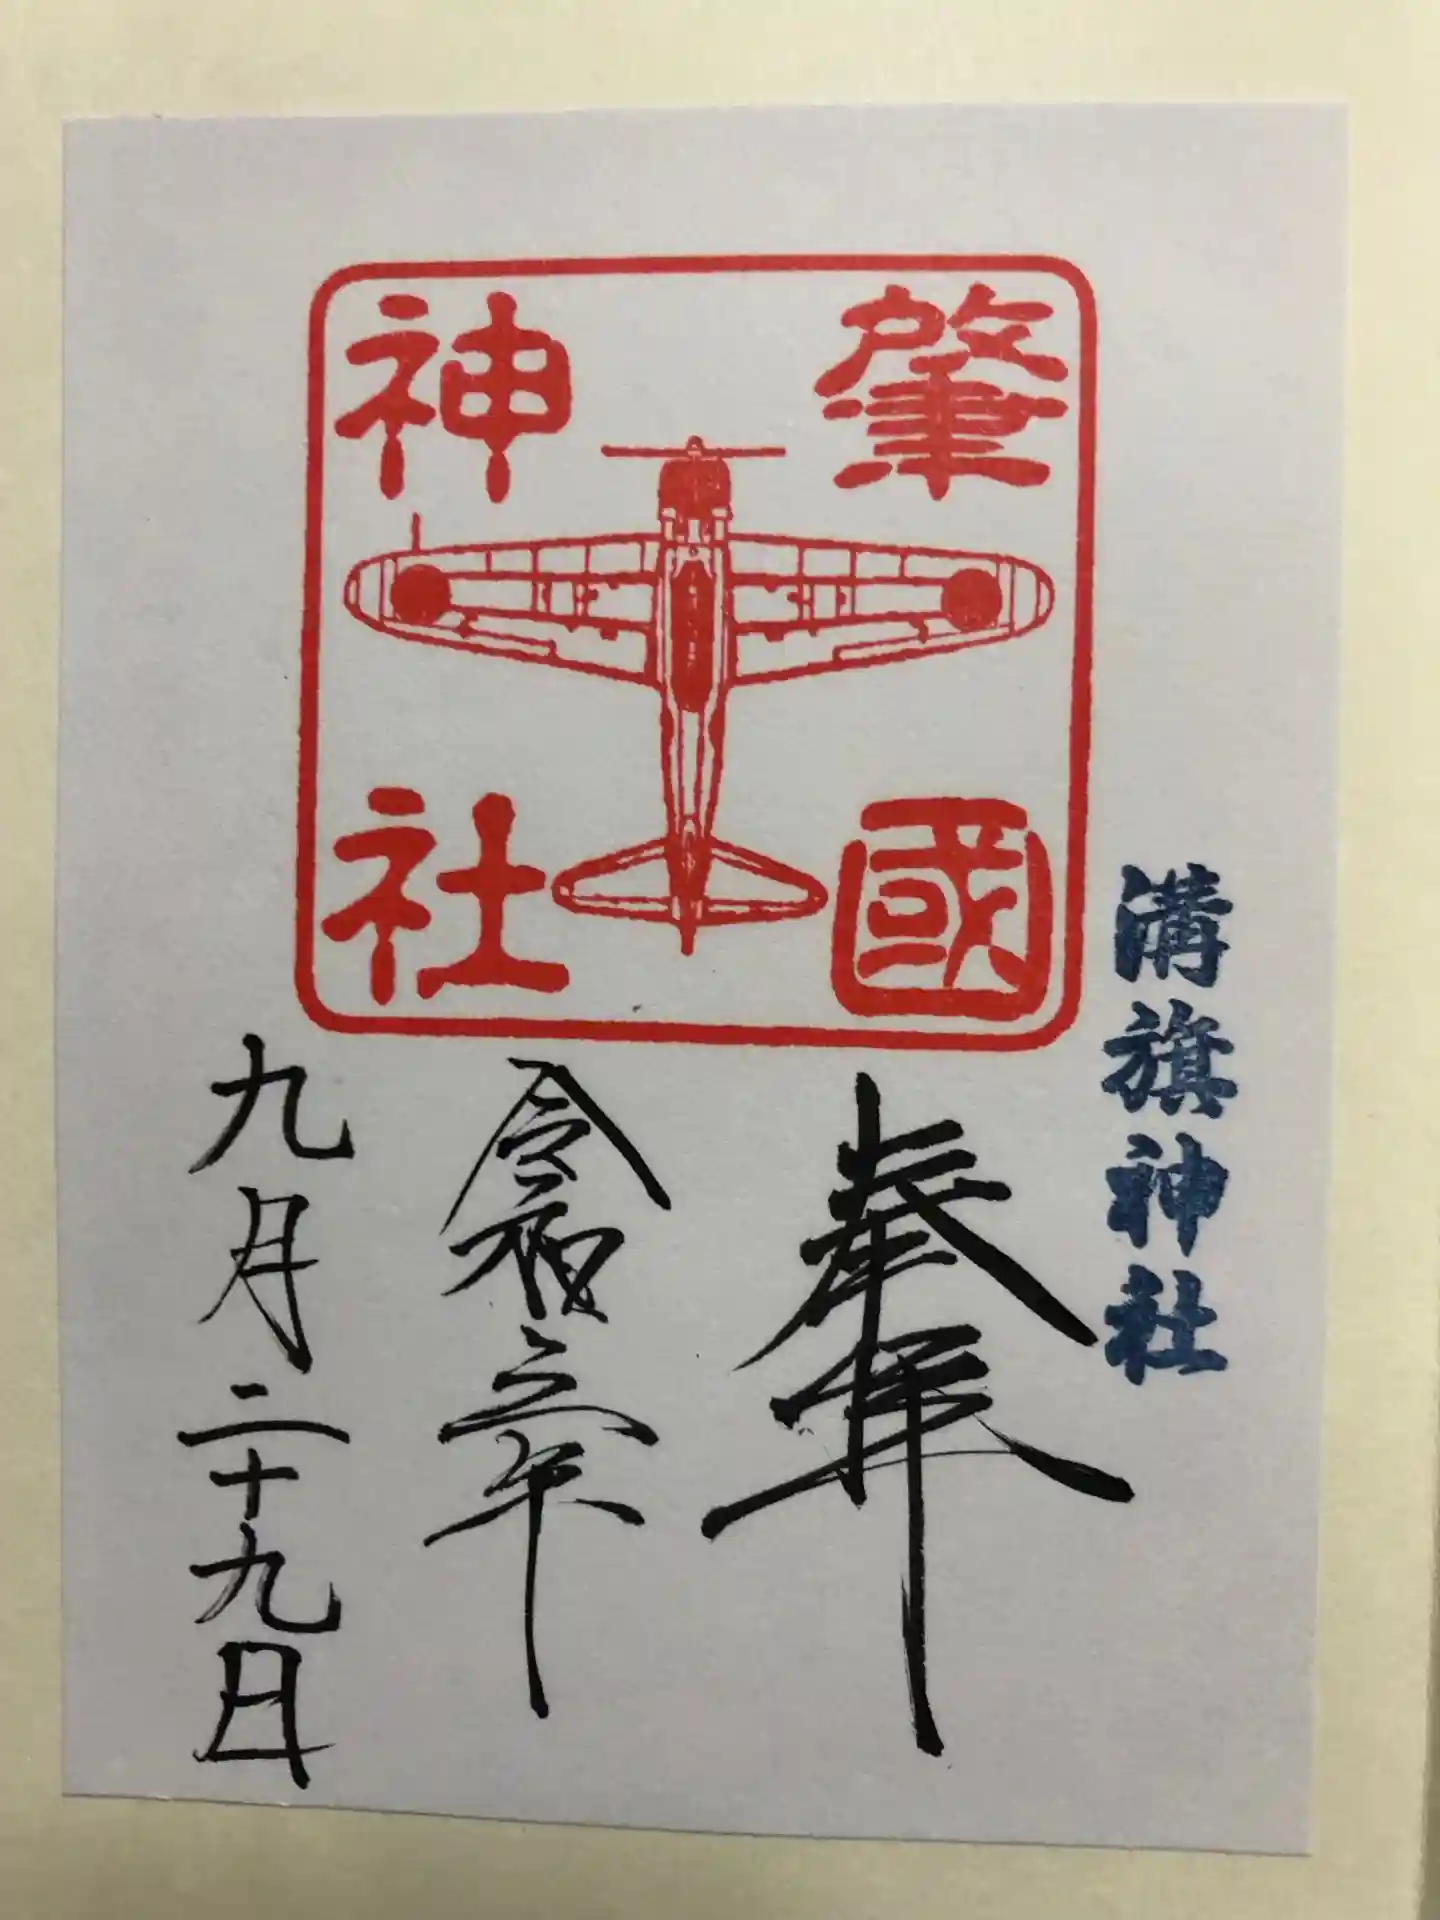 溝旗神社
肇國
神社
奉拝
令和三年
九月二十九日